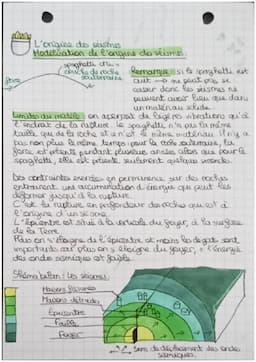 L'origine des séismes
Modélisation de l'origine des séismes
spaghetti cru =
couche de roche
souterraine
force
Remarque : si le spaghetti est
cuit → ne peut pas se
casser donc les séismes ne
peuvent avoir lieu que dans
un matériau solide.
Limites du modèle : on aperçoit de légères vibrations qu'à
l'endroit de la rupture. Le spaghetti n'a pas la même
taille que la roche et ce n'est le même matériau. Il n'y a
pas non plus le même temps : pour la roche souterraine, la
force est présente pendant plusieurs années alors que pour le
spaghetti, elle est présente seulement quelques secondes.
Des contraintes exercées en permanence sur des roches
entrainent une accumulation d'énergie qui peut les
déformer jusqu'à la rupture.
C'est la rupture en profondeur des roches qui est à
l'origine d'un séisme.
L'épicentre est situé à la verticale du foyer, à la surface
de la Terre.
Plus on s'éloigne de l'épicentre, et moins les dégâts sont
importants car plus on s'éloigne du foyer, + l'énergie
des ondes sismiques est faible.
Schéma bilan : Les séismes.
Maisons fissurées
Maisons détruites
Épicentre
Faille
Foyer
Sens de déplacement des ondes
sismiques.